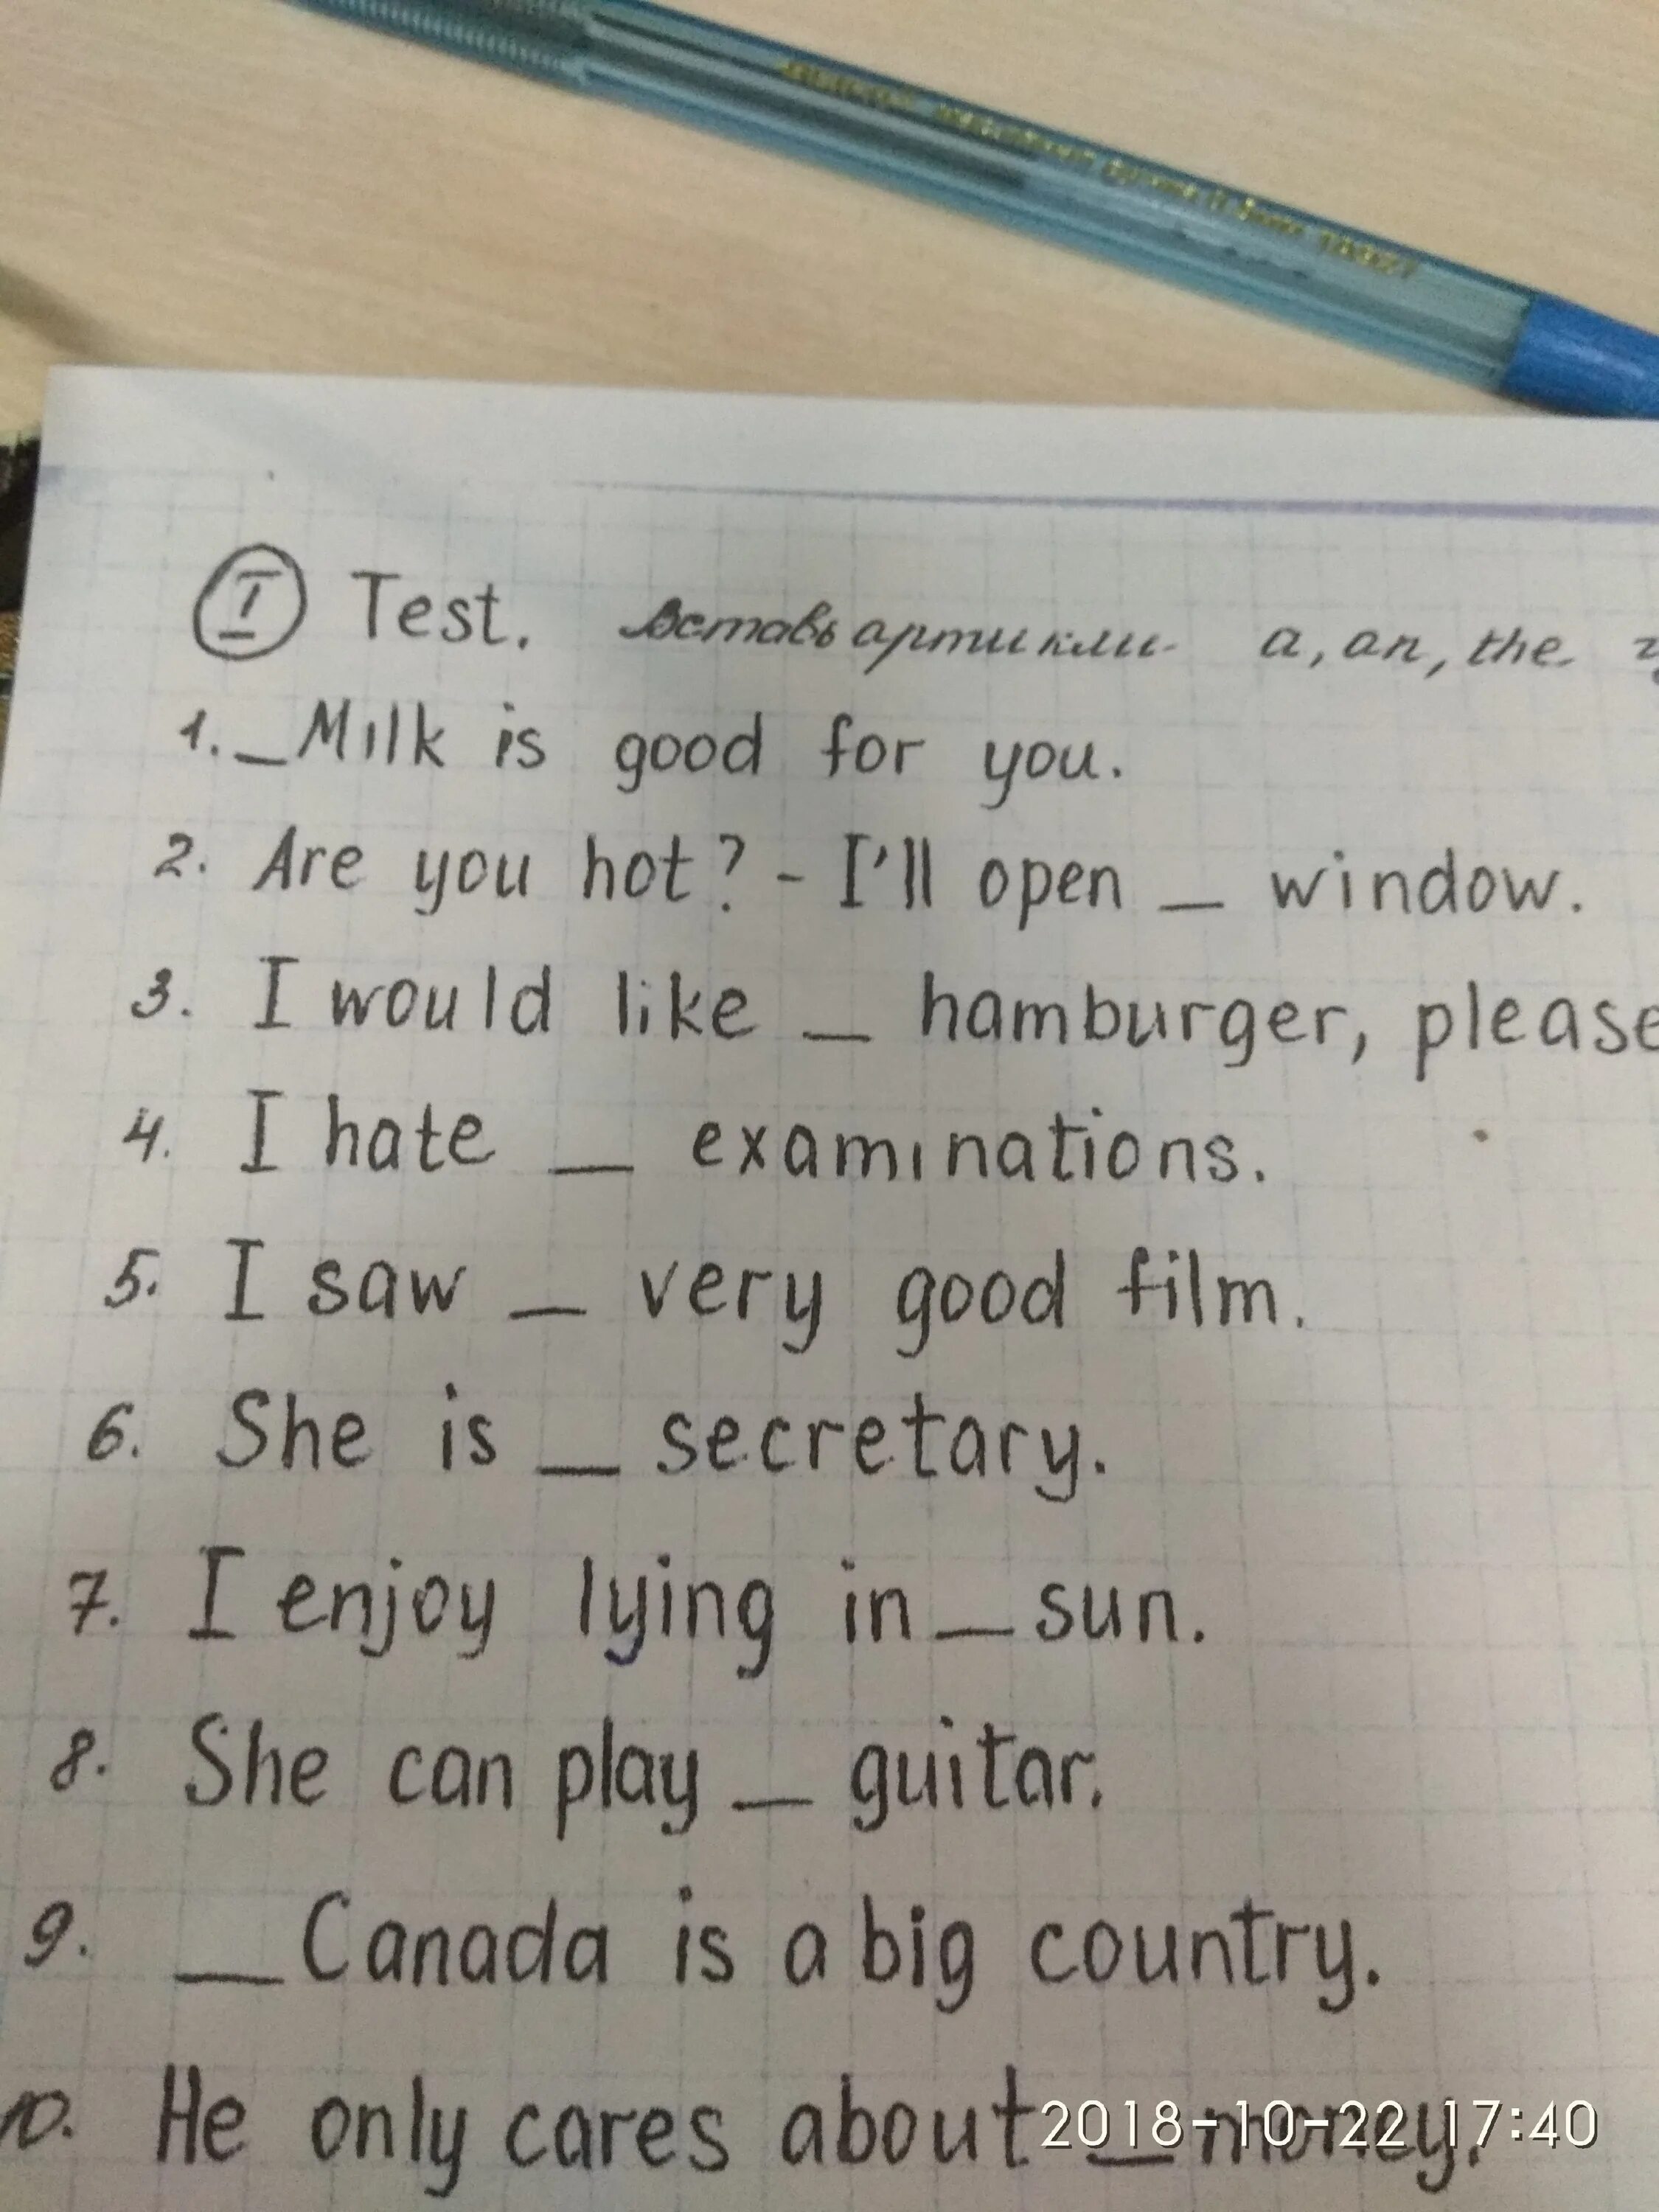 I Test. Вставь артикли a, an, the
1. _ Milk is good for you.
2. Are you hot? - I'll open _ window.
3. I would like _ hamburger, please
4. I hate _ examinations.
5. I saw _ very good film.
6. She is _ secretary.
7. I enjoy lying in _ sun.
8. She can play _ guitar.
9. _ Canada is a big country.
10. He only cares about _ money.
2018-10-22 17:40